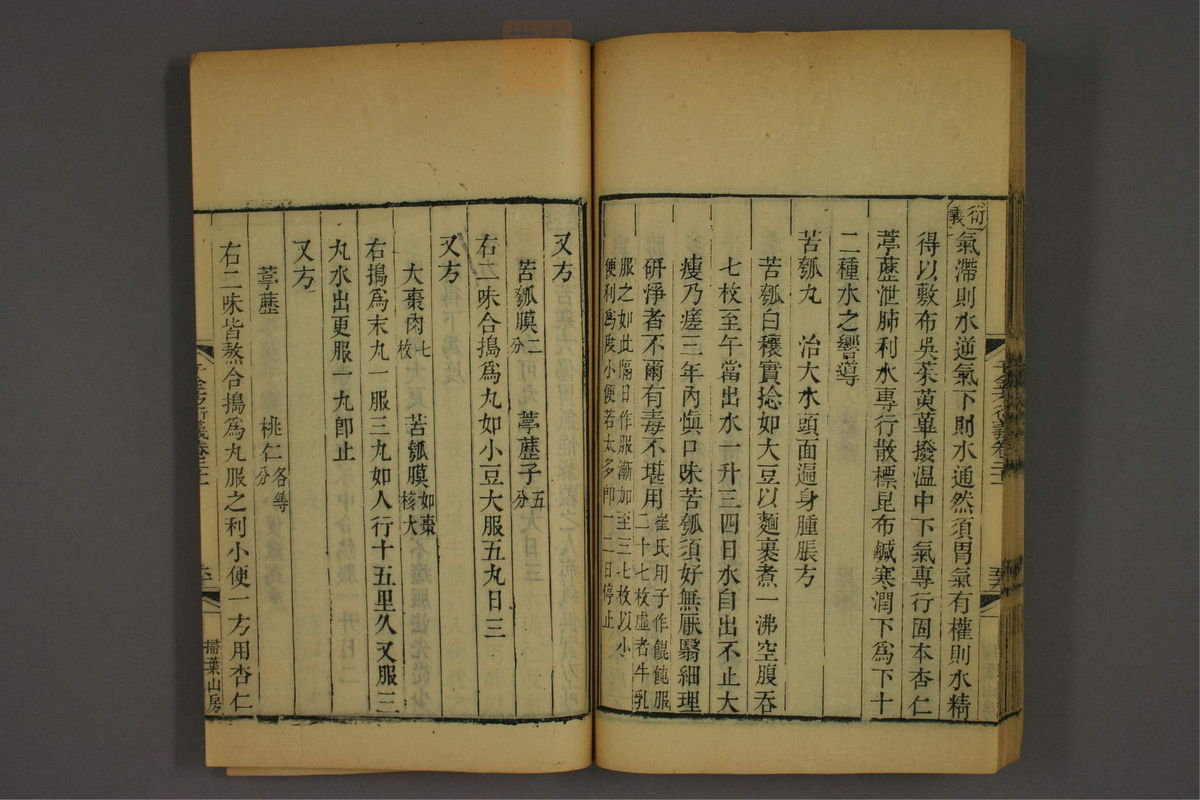 衍義
氣滯則水逆氣下則水通然須胃氣有權則水精
得以敷布吳茱萸蓽撥溫中下氣專行固本杏仁
葶藶泄肺利水專行散標昆布鹹寒潤下爲下十
二種水之響導
苦瓠丸　治大水頭面遍身腫脹方
苦瓠白穰實捻如大豆以麵裹煮一沸空腹吞
七枚至午當出水一升三四日水自出不止大
瘦乃瘥三年內愼口味苦瓠須好無厭翳細理
硏淨者不爾有毒不堪用崔氏用子作餛飩服二十七枚虛者牛乳
服之如此隔日作服漸加至三七枚以小便利爲度小便若太多卽一二日停止
又方
苦瓠膜二分　葶藶子五分
右二味合搗爲丸如小豆大服五丸日三
又方
大棗肉七枚　苦瓠膜如棗核大
右搗爲末丸一服三丸如人行十五里久又服三
丸水出更服一丸卽止
又方
葶藶　桃仁各等分
右二味皆熬合搗爲丸服之利小便一方用杏仁
千金方衍義卷二十一
掃葉山房